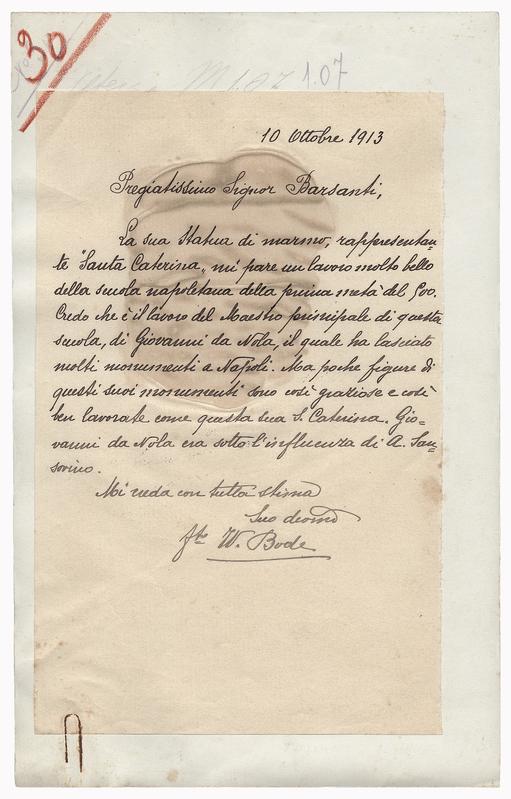 30
1.07
10 Ottobre 1913
Pregiatissimo Signor Barsanti,
La sua statua di marmo, rappresentan=
te "Santa Caterina„ mi pare un lavoro molto bello
della scuola napoletana della prima metà del 500.
Credo che è il lavoro del Maestro principale di questa
scuola, di Giovanni da Nola, il quale ha lasciato
molti monumenti a Napoli. Ma poche figure di
questi suoi monumenti sono così graziose e così
ben lavorate come questa sua S. Caterina. Gio=
vanni da Nola era sotto l'influenza di A. San=
sovino.
Mi creda con tutta stima
Suo devotmo
fto W. Bode